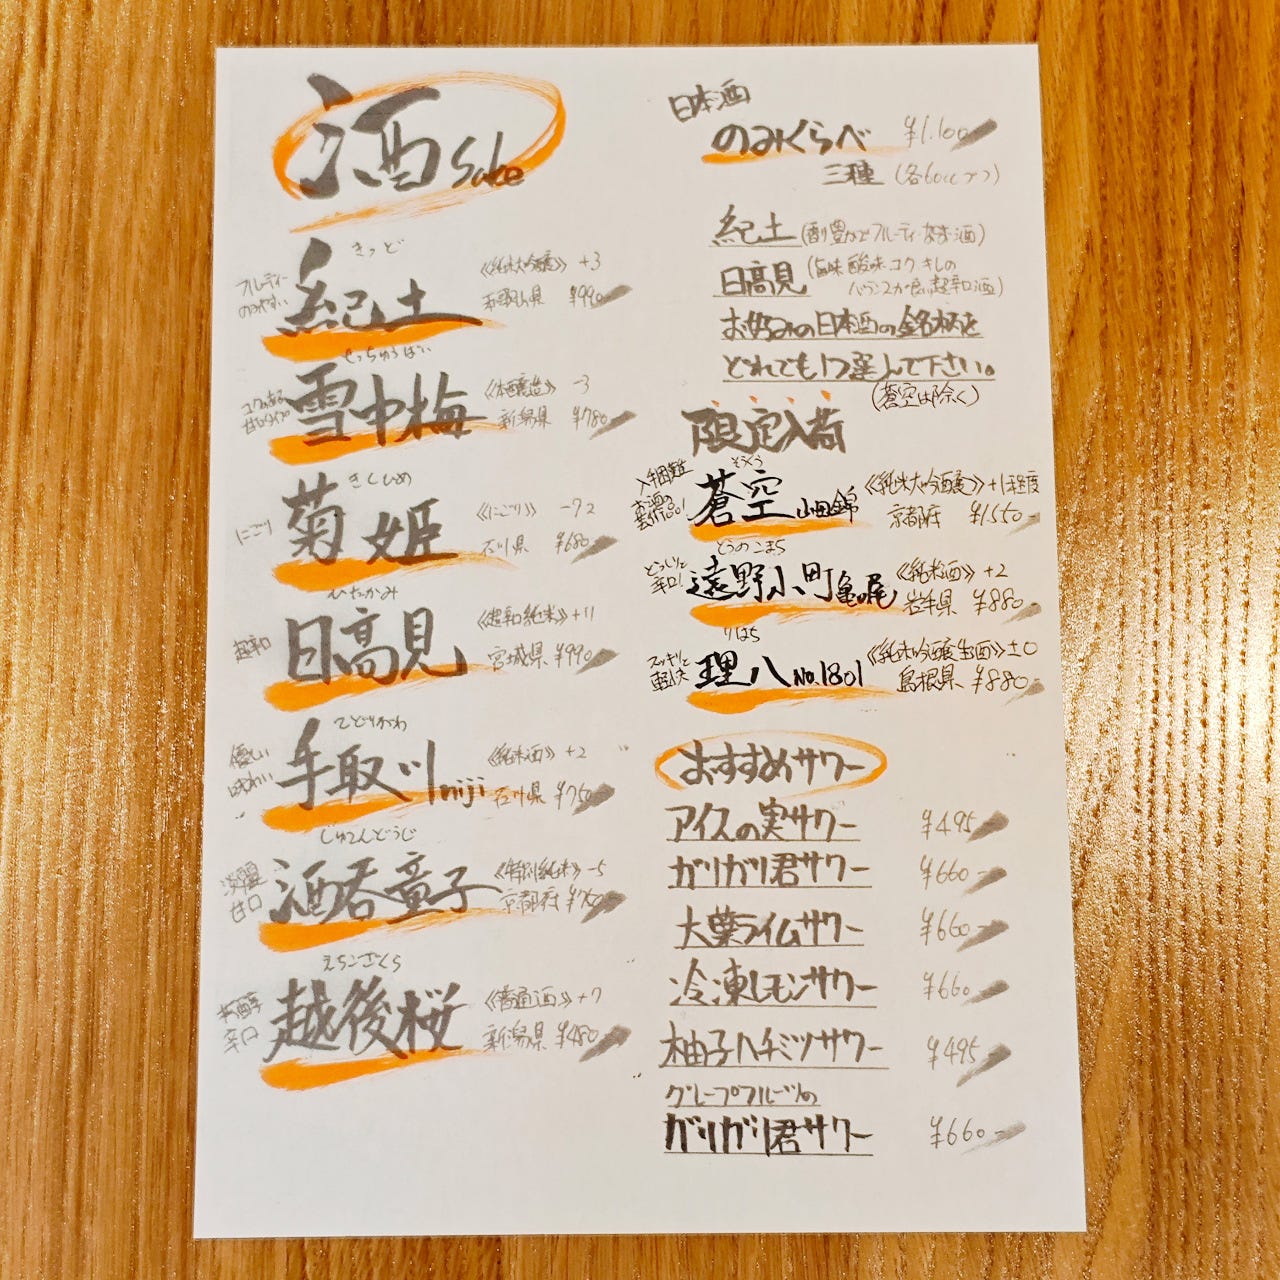 酒 Sake
きっど
フルーティー
のみやすい
紀土
《純米大吟醸》 +3
和歌山県 ¥990-
せっちゅうばい
コクのある
甘口タイプ
雪中梅
《本醸造》 -3
新潟県 ¥780-
きくひめ
にごり
菊姫
《にごり》 -22
石川県 ¥680-
ひたかみ
超辛口
日高見
《超辛純米》 +11
宮城県 ¥990-
てどりがわ
優しい
味わい
手取川 niji
《純米酒》 +2
石川県 ¥750-
しゅてんどうじ
淡麗
甘口
酒呑童子
《特別純米》 -5
京都府
えちござくら
辛口
越後桜
《普通酒》 +7
新潟県 ¥480-
日本酒
のみくらべ ¥1.100-
三種 (各60ccずつ)
紀土 (香り豊かでフルーティーなお酒)
日高見 (旨味 酸味 コク キレの
バランスが良い超辛口酒)
お好みの日本酒の銘柄を
どれでも1つ選んで下さい。
(蒼空は除く)
限定入荷
入手困難
お酒の
そうくう
蒼空 山田錦
《純米大吟醸》 +1程度
京都府 ¥1.550-
とおのこまち
どっしりと
辛口!
遠野小町 亀の尾
《純米酒》 +2
岩手県 ¥880-
りはち
スッキリと
軽快
理八 No.1801
《純米吟醸生酒》 ±0
島根県 ¥880-
おすすめサワー
アイスの実サワー ¥495-
ガリガリ君サワー ¥660-
大葉ライムサワー ¥660-
冷凍レモンサワー ¥660-
柚子ハチミツサワー ¥495-
グレープフルーツの
ガリガリ君サワー ¥660-